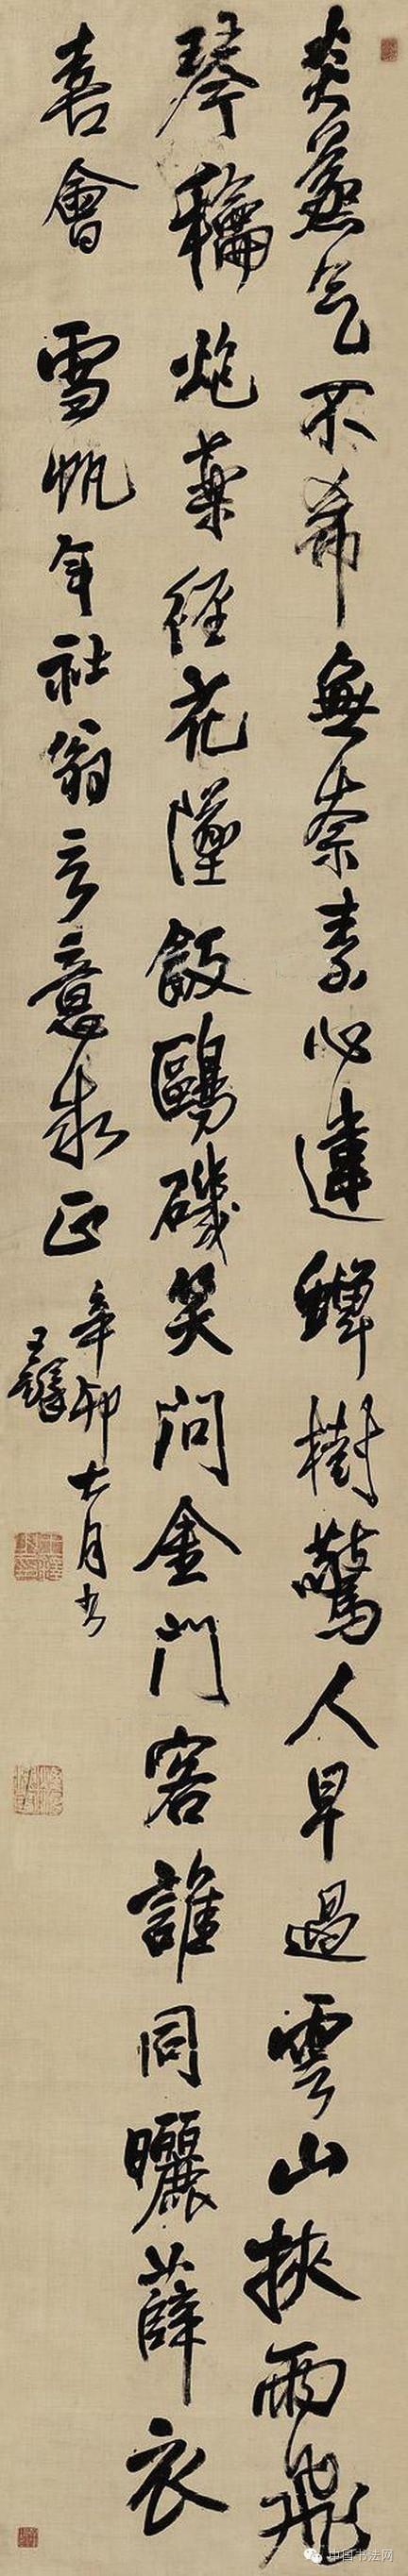 炎蒸气不希無奈素心違蟬樹驚人早過雲山挾雨飛
琴穐炮藥徑花墜飯鷗磯笑問金門客誰同曬薜衣
喜會 雪帆年社翁言意求正
辛卯六月書
王鐸
中国书法网